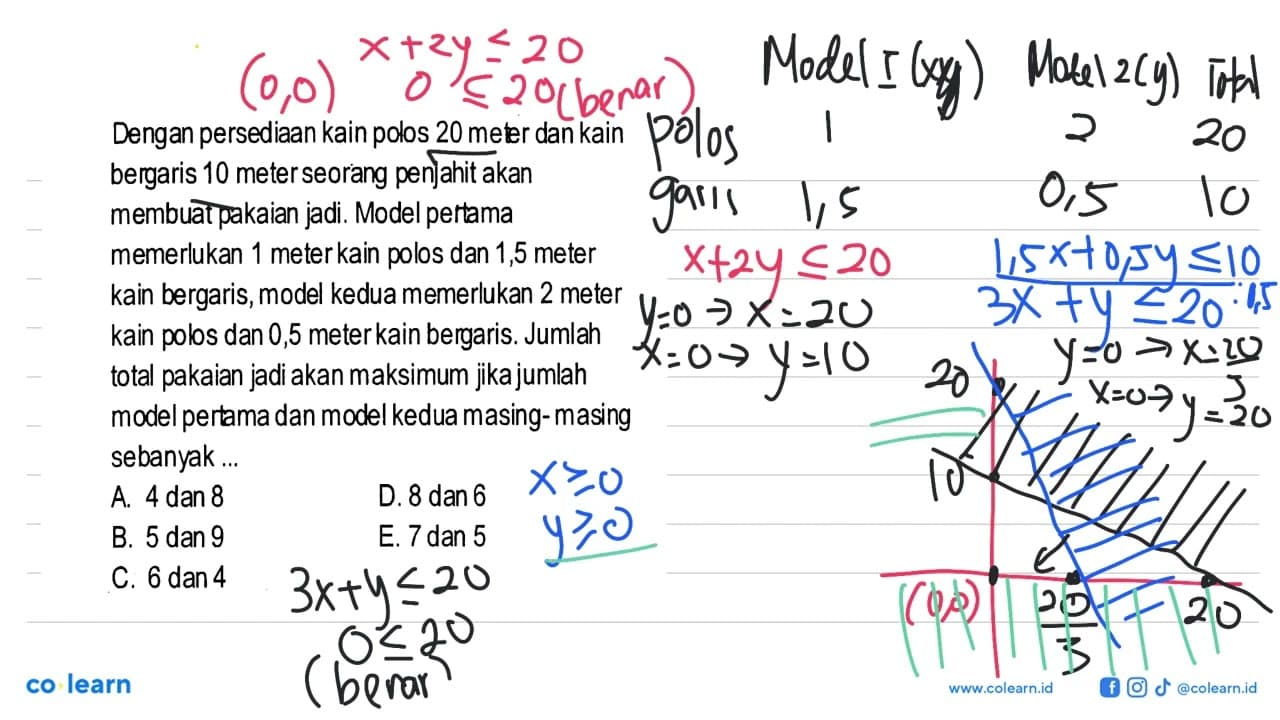 x+2y ≤ 20
(0,0) 0 ≤ 20 (benar)
Dengan persediaan kain polos 20 meter dan kain
bergaris 10 meter seorang penjahit akan
membuat pakaian jadi. Model pertama
memerlukan 1 meter kain polos dan 1,5 meter
kain bergaris, model kedua memerlukan 2 meter
kain polos dan 0,5 meter kain bergaris. Jumlah
total pakaian jadi akan maksimum jika jumlah
model pertama dan model kedua masing-masing
sebanyak ...
A. 4 dan 8
D. 8 dan 6
B. 5 dan 9
E. 7 dan 5
C. 6 dan 4
x ≥ 0
y ≥ 0
3x+y ≤ 20
0 ≤ 20
(benar)
Model 2 (y) Total
polos 1 2 20
garis 1,5 0,5 10
x+2y ≤ 20
1,5x+0,5y ≤ 10
3x + y ≤ 20
y=0 → x=20
x=0 → y=10
y=0 → x=20/3
x=0 → y=20
20
10
(0,0)
20/3
20
co learn
www.colearn.id
@colearn.id